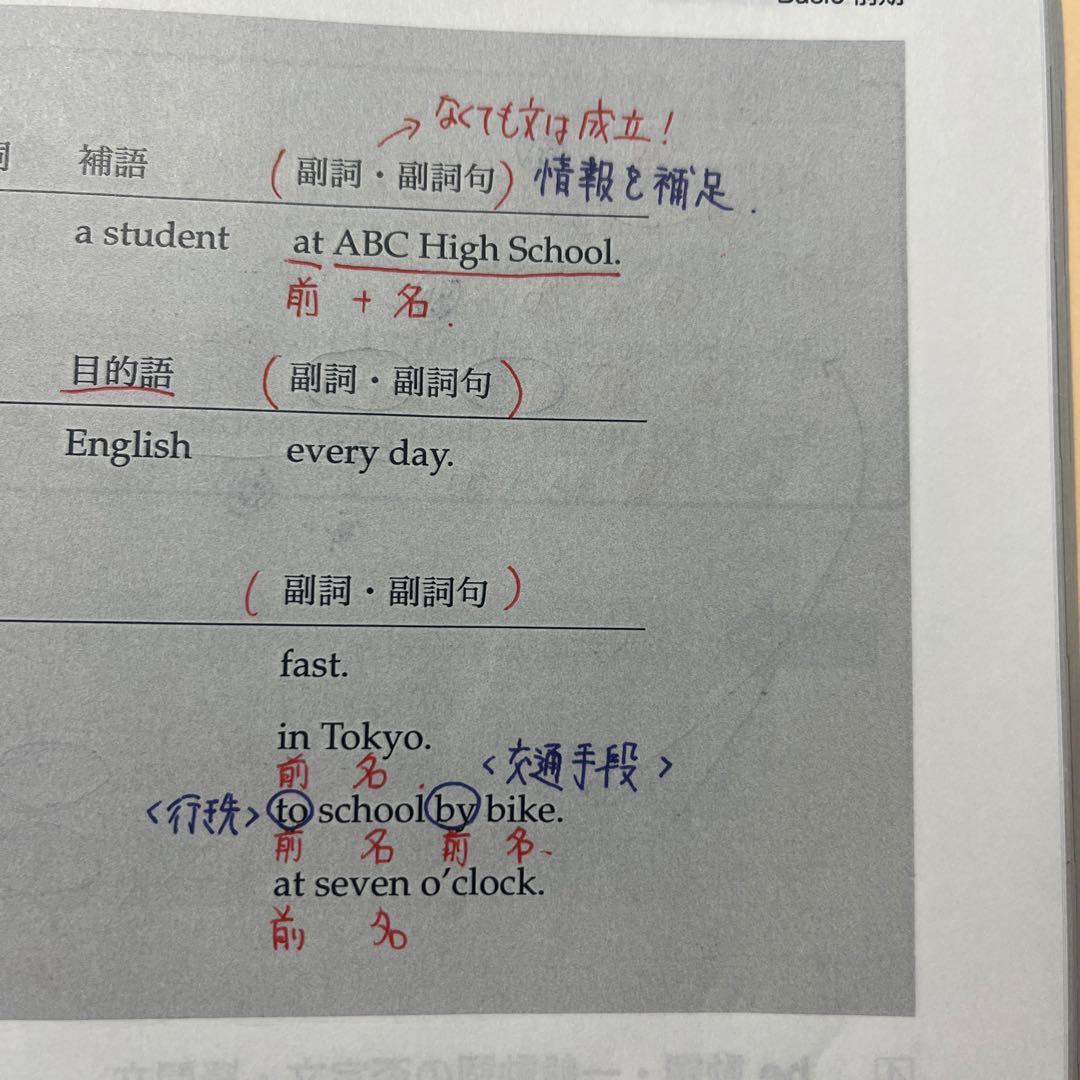 Basic 前期
なくても文は成立!
詞 補語 (副詞・副詞句) 情報を補足.
a student at ABC High School.
前 + 名.
目的語 (副詞・副詞句)
English every day.
(副詞・副詞句)
fast.
in Tokyo.
前 名. <交通手段>
<行き先> to school by bike.
前 名 前 名.
at seven o'clock.
前 名